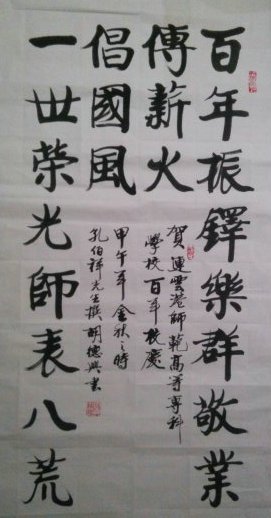 百年振鐸樂群敬業
傳薪火
倡國風
一世榮光師表八荒
賀連雲港師範高等專科
學校百年校慶
甲午年金秋之時
孔伯祥先生撰胡德興書